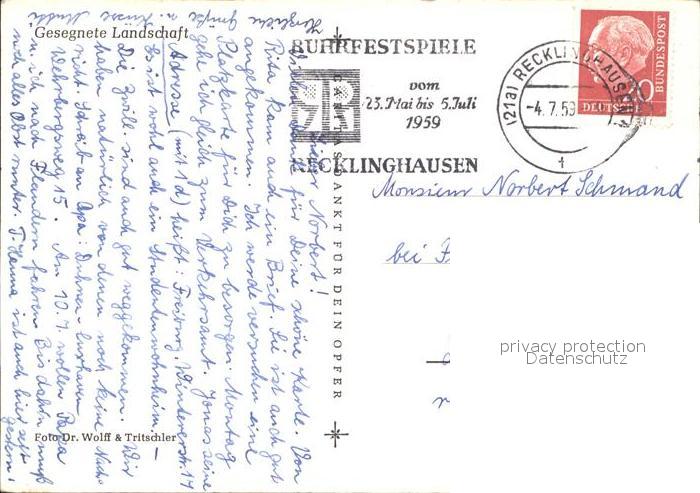 Gesegnete Landschaft
RUHRFESTSPIELE
vom
23. Mai bis 5. Juli
1959
RECKLINGHAUSEN
(21a) RECKLINGHAUSEN
-4.7.59
1
DEUTSCHE
BUNDESPOST
20
Monsieur Norbert Schmand
bei F
privacy protection
Datenschutz
CARITAS DANKT FÜR DEIN OPFER
Lieber Norbert!
Vielen Dank für Deine schöne Karte. Von
Rita kam auch ein Brief. Sie ist auch gut
angekommen. Ich werde versuchen eine
Platzkarte für Dich zu besorgen. Montag
geh ich gleich zum Verkehrsamt. Jonas seine
Adresse (mit 1 d) heißt: Freiburg, Wintererstr. 17
Es ist wohl auch ein Studentenwohnheim. –
Die Zwill. sind auch gut weggekommen. Wir
haben natürlich von denen noch keine Nach-
richt. Schreib an Opa: Duhnen-Cuxhaven
Wehrbergsweg 15. Am 10.7. wollen Papa
u. ich nach Flandern fahren. Bis dahin muß
noch alles Obst runter. T. Hanna ist auch hier seit
gestern!
Herzliche Grüße u. Küsse Mutti
Foto Dr. Wolff & Tritschler